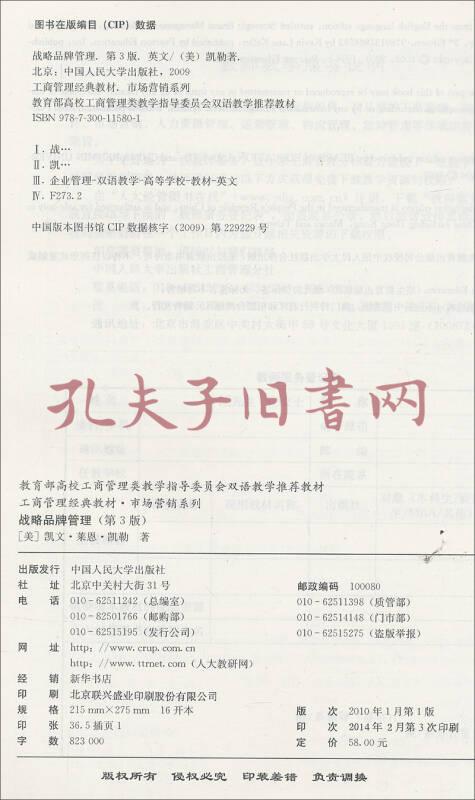 图书在版编目（CIP）数据
战略品牌管理．第 3 版．英文/（美）凯勒著．
北京：中国人民大学出版社，2009
工商管理经典教材．市场营销系列
教育部高校工商管理类教学指导委员会双语教学推荐教材
ISBN 978-7-300-11580-1
Ⅰ. 战…
Ⅱ. 凯…
Ⅲ. 企业管理-双语教学-高等学校-教材-英文
Ⅳ. F273.2
中国版本图书馆 CIP 数据核字（2009）第 229229 号
孔夫子旧书网
教育部高校工商管理类教学指导委员会双语教学推荐教材
工商管理经典教材·市场营销系列
战略品牌管理（第 3 版）
[美] 凯文·莱恩·凯勒 著
出版发行 中国人民大学出版社
社 址 北京中关村大街 31 号 邮政编码 100080
电 话 010-62511242（总编室） 010-62511398（质管部）
010-82501766（邮购部） 010-62514148（门市部）
010-62515195（发行公司） 010-62515275（盗版举报）
网 址 http：//www.crup.com.cn
http：//www.ttrnet.com（人大教研网）
经 销 新华书店
印 刷 北京联兴盛业印刷股份有限公司
规 格 215 mm×275 mm 16 开本 版 次 2010 年 1 月第 1 版
印 张 36.5 插页 1 印 次 2014 年 2 月第 3 次印刷
字 数 823 000 定 价 58.00 元
版权所有 侵权必究 印装差错 负责调换